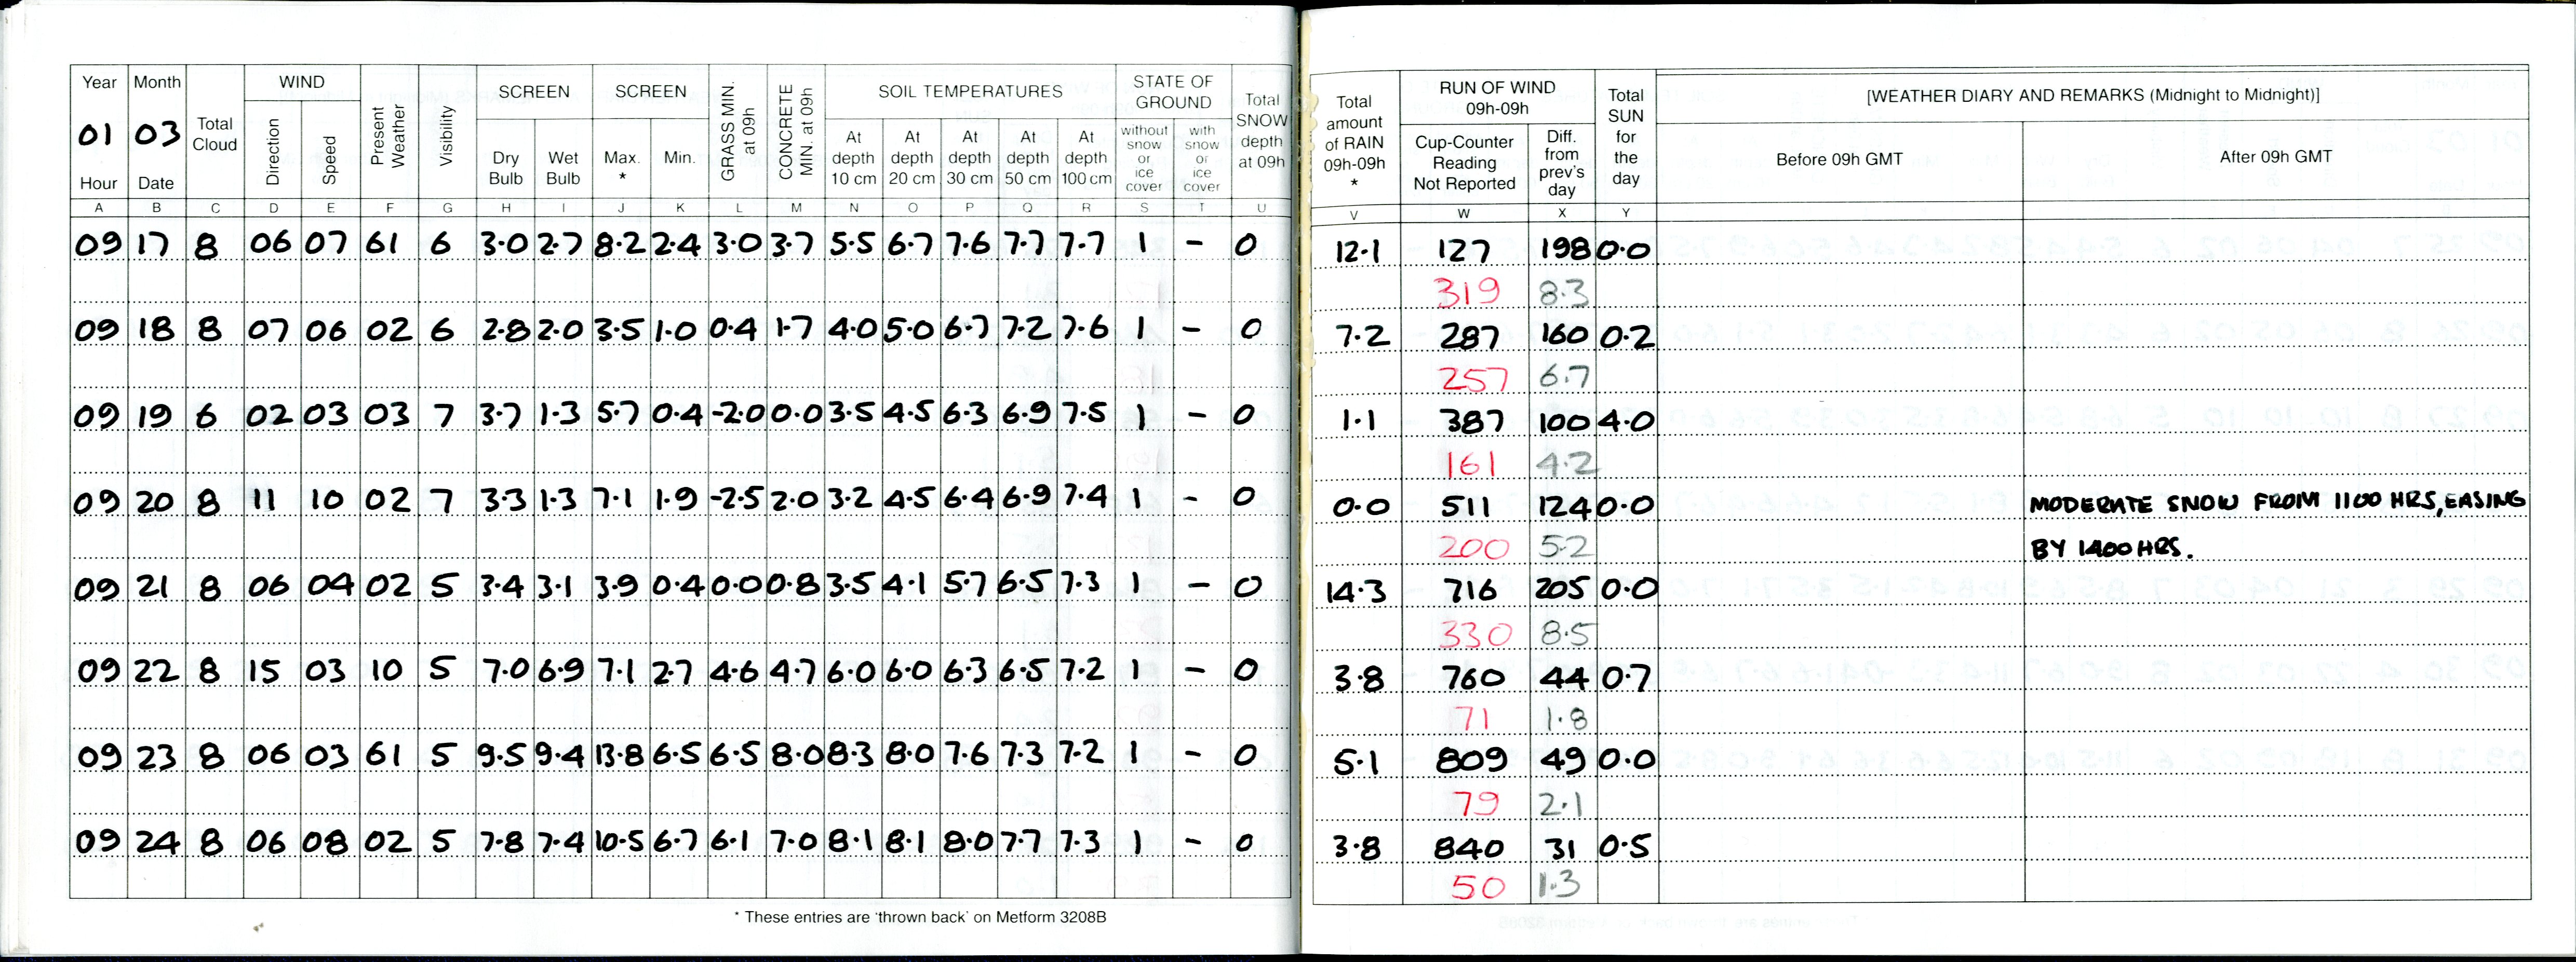 Year Month Total Cloud WIND Present Weather Visibility SCREEN SCREEN GRASS MIN. at 09h CONCRETE MIN. at 09h SOIL TEMPERATURES STATE OF GROUND Total SNOW depth at 09h Total amount of RAIN 09h-09h * RUN OF WIND 09h-09h Total SUN for the day [WEATHER DIARY AND REMARKS (Midnight to Midnight)]
01 03 Direction Speed Dry Bulb Wet Bulb Max. * Min. At depth 10 cm At depth 20 cm At depth 30 cm At depth 50 cm At depth 100 cm without snow or ice cover with snow or ice cover Cup-Counter Reading Not Reported Diff. from prev's day Before 09h GMT After 09h GMT
Hour Date
A B C D E F G H I J K L M N O P Q R S T U V W X Y
09 17 8 06 07 61 6 3.0 2.7 8.2 2.4 3.0 3.7 5.5 6.7 7.6 7.7 7.7 1 - 0 12.1 127 198 0.0
319 8.3
09 18 8 07 06 02 6 2.8 2.0 3.5 1.0 0.4 1.7 4.0 5.0 6.7 7.2 7.6 1 - 0 7.2 287 160 0.2
257 6.7
09 19 6 02 03 03 7 3.7 1.3 5.7 0.4 -2.0 0.0 3.5 4.5 6.3 6.9 7.5 1 - 0 1.1 387 100 4.0
161 4.2
09 20 8 11 10 02 7 3.3 1.3 7.1 1.9 -2.5 2.0 3.2 4.5 6.4 6.9 7.4 1 - 0 0.0 511 124 0.0 MODERATE SNOW FROM 1100 HRS, EASING
200 5.2 BY 1400 HRS.
09 21 8 06 04 02 5 3.4 3.1 3.9 0.4 0.0 0.8 3.5 4.1 5.7 6.5 7.3 1 - 0 14.3 716 205 0.0
330 8.5
09 22 8 15 03 10 5 7.0 6.9 7.1 2.7 4.6 4.7 6.0 6.0 6.3 6.5 7.2 1 - 0 3.8 760 44 0.7
71 1.8
09 23 8 06 03 61 5 9.5 9.4 13.8 6.5 6.5 8.0 8.3 8.0 7.6 7.3 7.2 1 - 0 5.1 809 49 0.0
79 2.1
09 24 8 06 08 02 5 7.8 7.4 10.5 6.7 6.1 7.0 8.1 8.1 8.0 7.7 7.3 1 - 0 3.8 840 31 0.5
50 1.3
* These entries are 'thrown back' on Metform 3208B